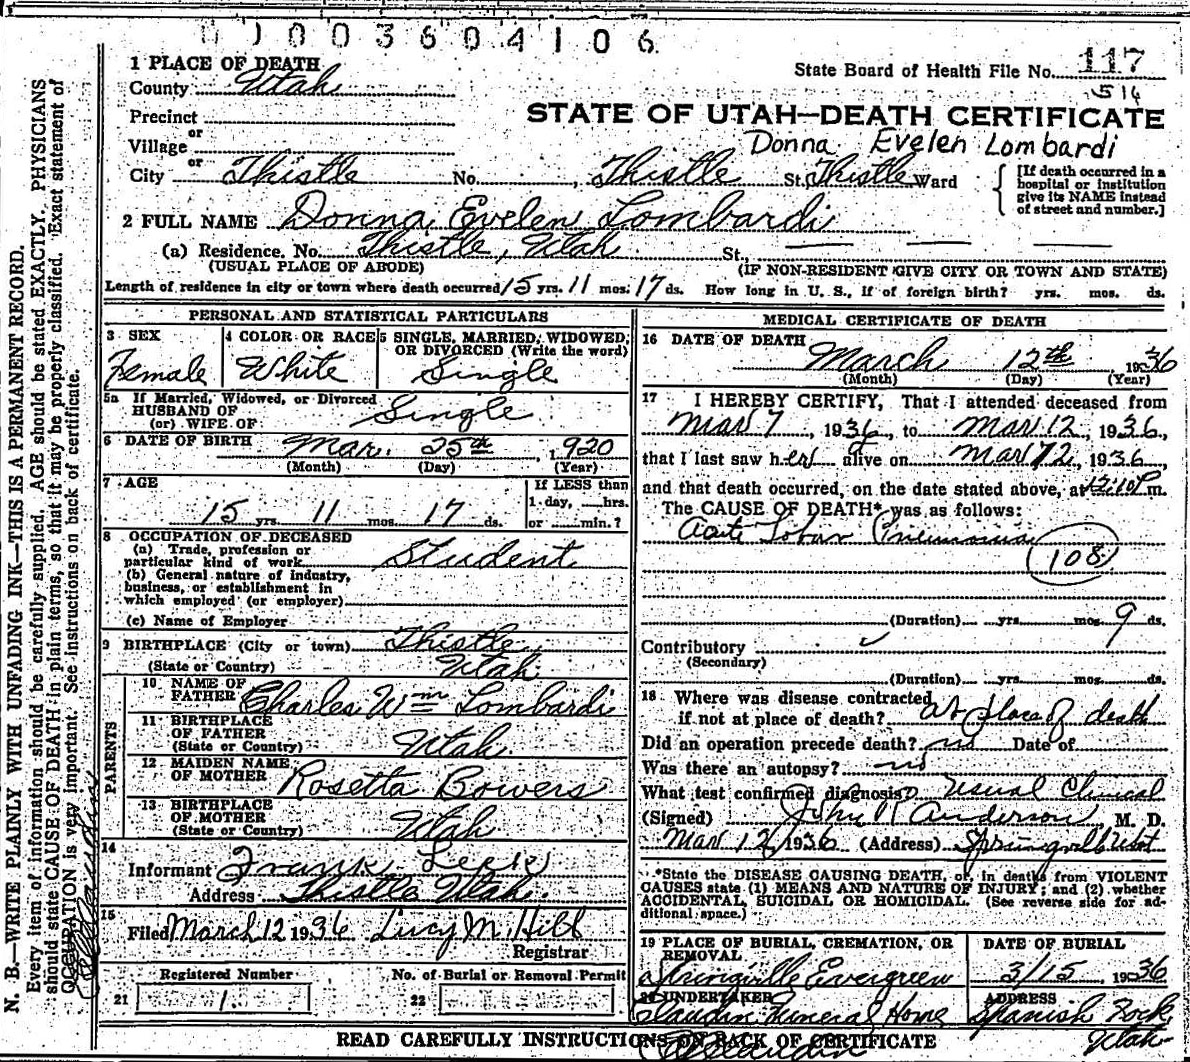 1003604106
State Board of Health File No. 117
516
1 PLACE OF DEATH
County Utah
STATE OF UTAH—DEATH CERTIFICATE
Precinct
or
Village
Donna Evelen Lombardi
or
City Thistle No. , Thistle St. Thistle Ward
[If death occurred in a hospital or institution give its NAME instead of street and number.]
2 FULL NAME Donna Evelen Lombardi
(a) Residence. No. Thistle, Utah St.,
(USUAL PLACE OF ABODE) (IF NON-RESIDENT GIVE CITY OR TOWN AND STATE)
Length of residence in city or town where death occurred 15 yrs. 11 mos. 17 ds. How long in U. S., if of foreign birth? yrs. mos. ds.
PERSONAL AND STATISTICAL PARTICULARS
3 SEX
Female
4 COLOR OR RACE
White
5 SINGLE, MARRIED, WIDOWED, OR DIVORCED (Write the word)
Single
5a If Married, Widowed, or Divorced
HUSBAND OF
(or) WIFE OF Single
6 DATE OF BIRTH Mar. 25th, 1920
(Month) (Day) (Year)
7 AGE
15 yrs. 11 mos. 17 ds.
If LESS than
1 day, hrs.
or min.?
8 OCCUPATION OF DECEASED
(a) Trade, profession or
particular kind of work Student
(b) General nature of industry,
business, or establishment in
which employed (or employer)
(c) Name of Employer
9 BIRTHPLACE (City or town) Thistle
(State or Country) Utah
PARENTS
10 NAME OF
FATHER Charles Wm Lombardi
11 BIRTHPLACE
OF FATHER
(State or Country) Utah
12 MAIDEN NAME
OF MOTHER Rosetta Bowers
13 BIRTHPLACE
OF MOTHER
(State or Country) Utah
14
Informant Frank
Address Thistle Utah
15
Filed March 12 1936 Lucy M. Hibb
Registrar
Registered Number
21 1.
No. of Burial or Removal Permit
22
MEDICAL CERTIFICATE OF DEATH
16 DATE OF DEATH
March 12th 1936
(Month) (Day) (Year)
17 I HEREBY CERTIFY, That I attended deceased from
Mar 7, 1936, to Mar 12, 1936,
that I last saw her alive on Mar 12, 1936
and that death occurred, on the date stated above, at 12:10 P m.
The CAUSE OF DEATH* was as follows:
Acute Lobar Pneumonia
108
(Duration) yrs. mos. 9 ds.
Contributory
(Secondary)
(Duration) yrs. mos. ds.
18 Where was disease contracted
if not at place of death? at place of death
Did an operation precede death? no Date of
Was there an autopsy? no
What test confirmed diagnosis? Usual Clinical
(Signed) John R Anderson, M. D.
Mar 12, 1936 (Address) Springville Utah
*State the DISEASE CAUSING DEATH, or, in deaths from VIOLENT
CAUSES state (1) MEANS AND NATURE OF INJURY; and (2) whether
ACCIDENTAL, SUICIDAL OR HOMICIDAL. (See reverse side for ad-
ditional space.)
19 PLACE OF BURIAL, CREMATION, OR
REMOVAL
Springville Evergreen
DATE OF BURIAL
3/15, 1936
20 UNDERTAKER
Claudin Funeral Home
ADDRESS
Spanish Fork
Utah
READ CAREFULLY INSTRUCTIONS ON BACK OF CERTIFICATE
N. B.—WRITE PLAINLY WITH UNFADING INK—THIS IS A PERMANENT RECORD.
Every item of information should be carefully supplied. AGE should be stated EXACTLY. PHYSICIANS
should state CAUSE OF DEATH in plain terms, so that it may be properly classified. Exact statement of
OCCUPATION is very important. See instructions on back of certificate.